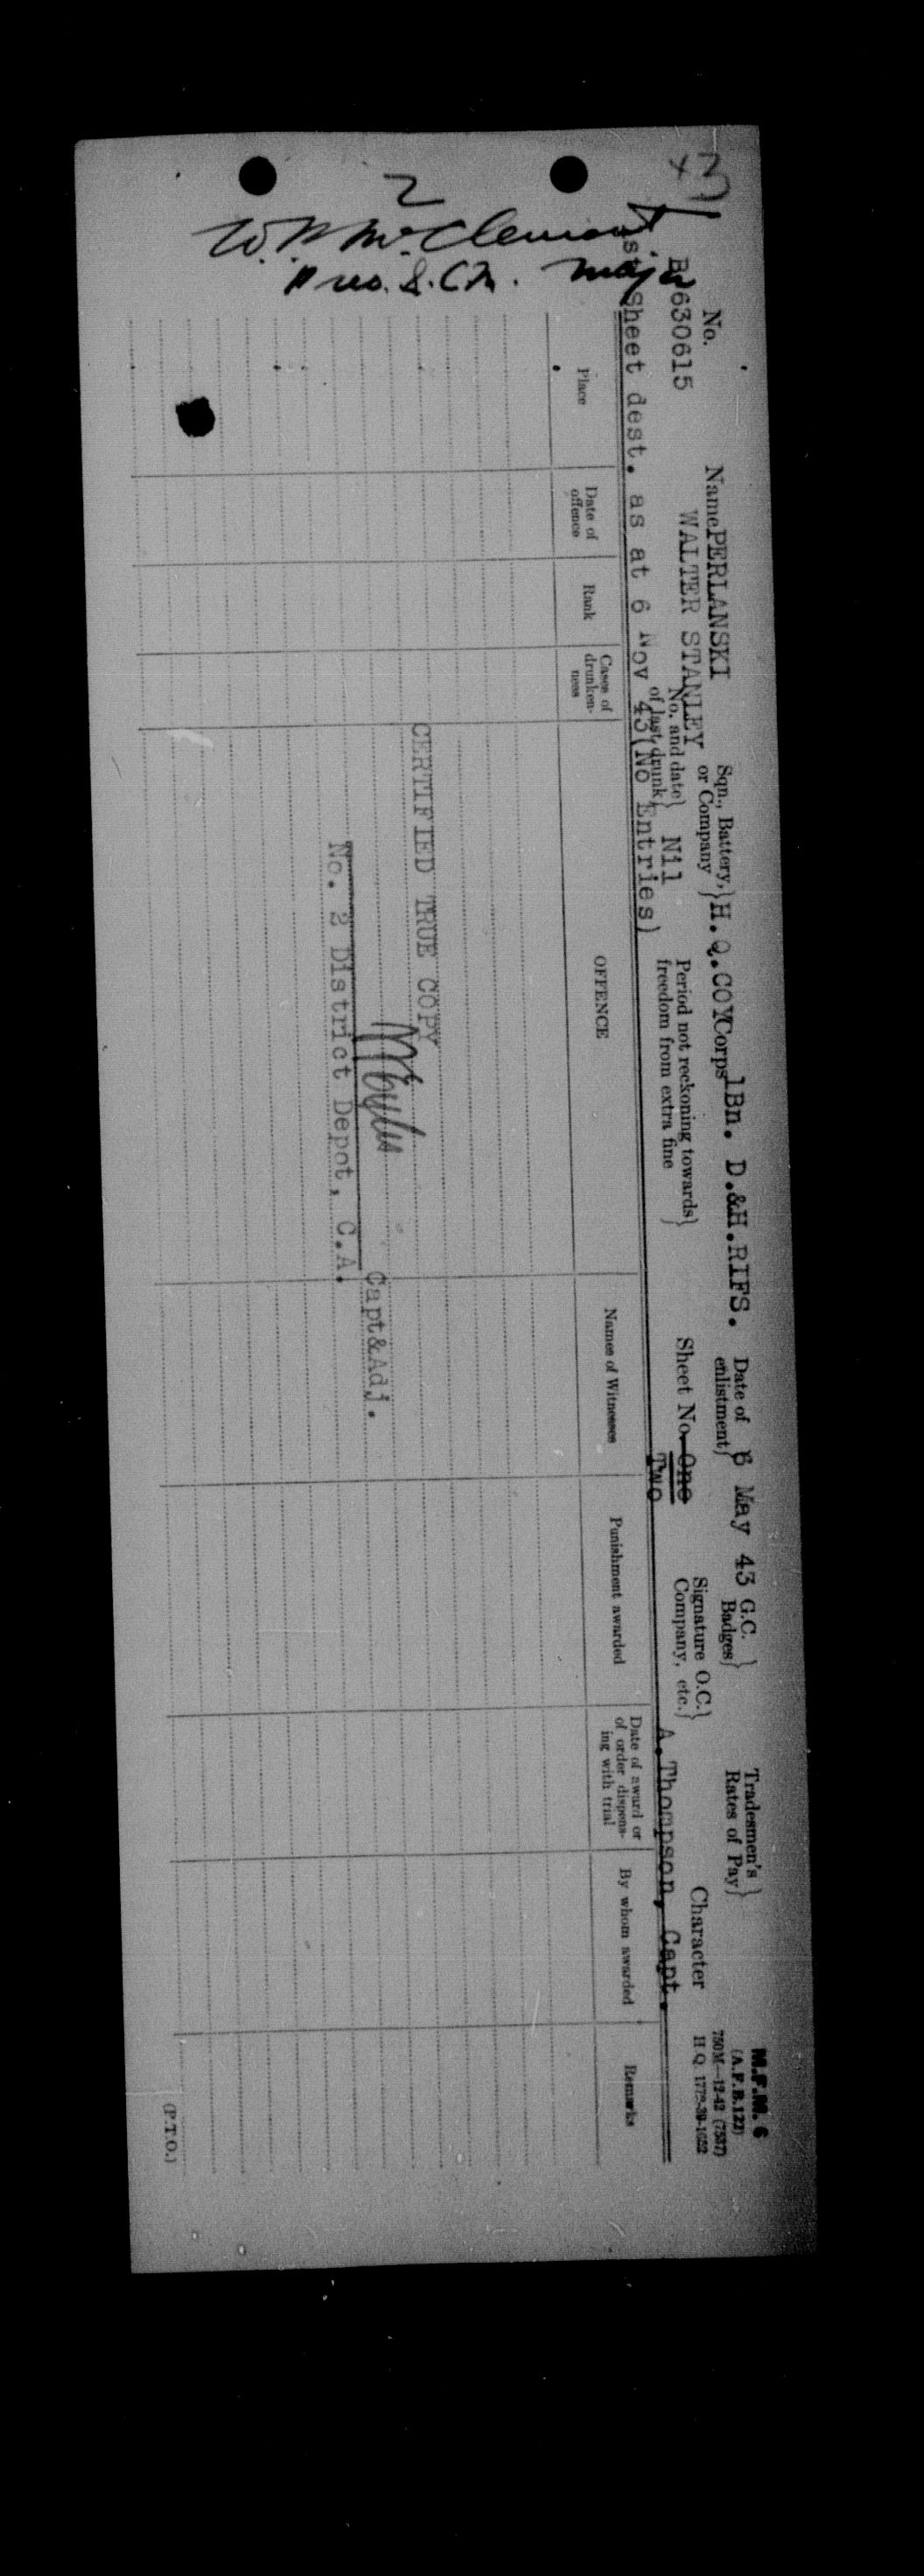 x3
M.F.M. 6
(A.F.B.122)
750M—12-42 (7537)
H.Q. 1772-39-1652
No. B 630615
Name PERLANSKI
WALTER STANLEY
Sqn., Battery, or Company} H.Q.COY
Corps 1Bn. D.&H.RIFS.
Date of enlistment} 6 May 43
G.C. Badges}
Tradesmen's Rates of Pay}
No. and date of last drunk} Nil
Period not reckoning towards freedom from extra fine}
Sheet No. One
Two
Signature O.C. Company, etc.}
A. Thompson, Capt.
Character
1st Sheet dest. as at 6 Nov 43(No Entries)
Place
Date of offence
Rank
Cases of drunken-ness
OFFENCE
Names of Witnesses
Punishment awarded
Date of award or of order dispens-ing with trial
By whom awarded
Remarks
CERTIFIED TRUE COPY
Capt&Adj.
No. 2 District Depot, C.A.
2
McClemont
Major
Pres.
(P.T.O.)